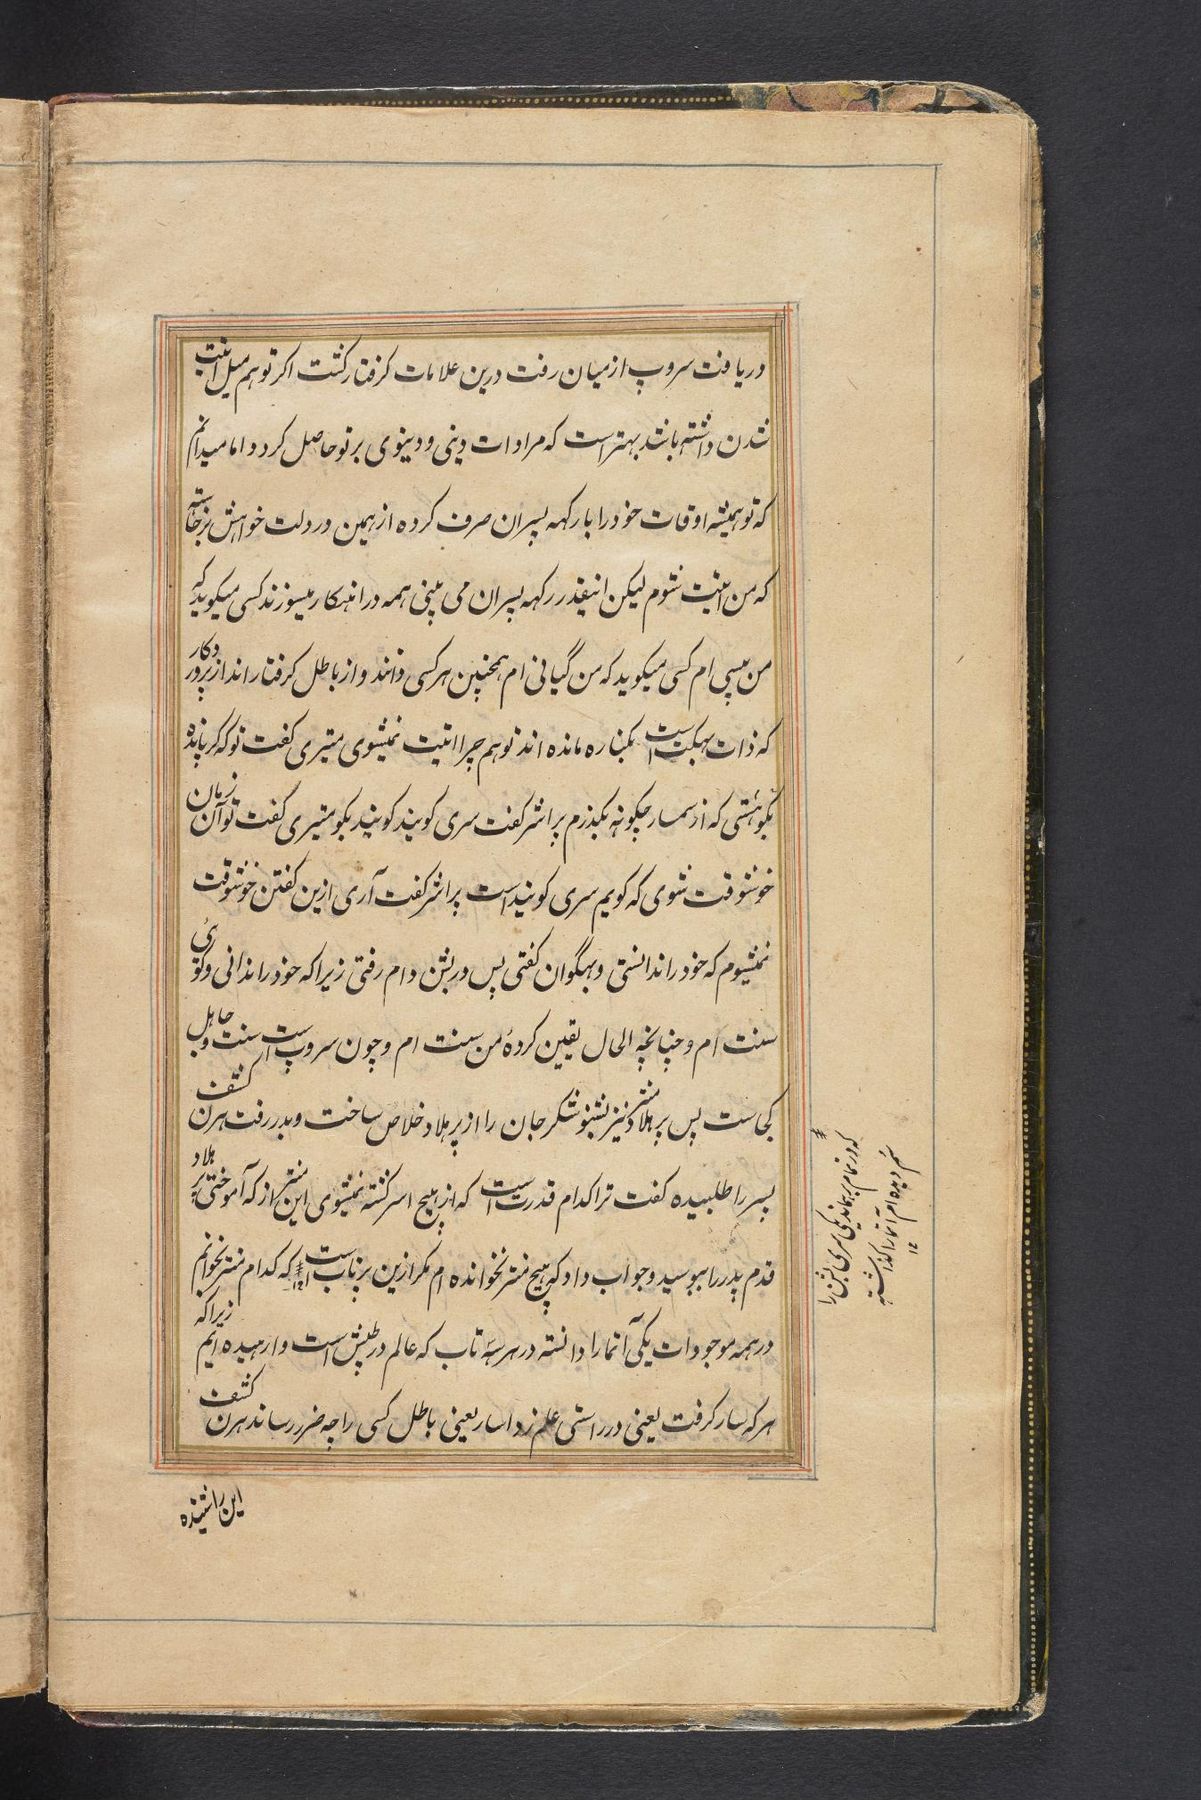 دریافت سروپ از میان رفت درین علامات کرفتار کشت اکر تو هم میل اتیت
شدن داشته باشد بهتر است که مرادات دینی و دینوی بر تو حاصل کردد اما میدانم
که تو همیشه اوقات خود را با رکهه پسران صرف کرده از همین در دلت خواهش برخاسته
که من اتیت شوم لیکن اینقدر رکهه پسران می بینی همه در اهنکار میسوزند کسی میکوید که
من سپی ام کسی میکوید که من گیانی ام همچنین هر کسی دانند و از باطل کرفتار اند از پروردکار
که ذات بهکت است بکناره مانده اند تو هم چرا اتیت نمیشوی میتری کفت تو که کرپانده
بکو هستی که از سمسار چکونه بکذرم پراشر کفت سری کویند کویند بکو میتری کفت تو آن زمان
خوشوقت شوی که کویم سری کویند است پراشر کفت آری ازین کفتن خوشوقت
نمیشوم که خود را ندانستی و بهگوان کفتی پس در بشن دام رفتی زیرا که خود را ندانی و کوئی
سنت ام و چنانچه الحال یقین کردهٔ من سنت ام و چون سروپ است سنت و جاهل
کجاست پس پرهلاد نیز بشنو شکر جان را از پرهلاد خلاص ساخت و بدر رفت هرن کشف
پسر را طلبیده کفت ترا کدام قدرت است که از هیچ اسر کشته نمیشوی این منتر از که آموختی پرهلاد
قدم پدر را ببوسید و جواب داد که هیچ منتر نخوانده ام مکر ازین پرتاب است که کدام منتر نخوانم
در همه موجودات یکی آتما را دانسته در هر سه تاب که عالم در طپش است وارهیده ایم زیرا که
هر که سار کرفت یعنی در راستی علم زد اسار یعنی باطل کسی را چه ضرر رساند هرن کشف
این را شنیده
که در تمام برهماند یکی سری بشن را
سم دیده ام آتما را کذاشته
۱۲